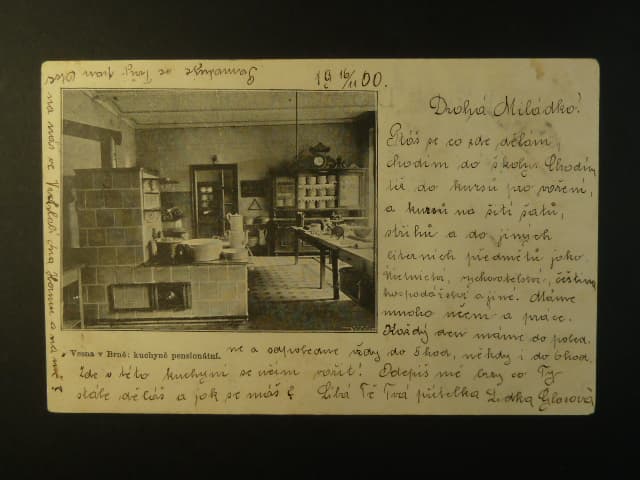 19 16/11 00.
Drahá Miládko!
Ptáš se co zde dělám,
chodím do školy. Chodím
též do kursu pro vaření,
a kursů na šití šatů,
střihů a do jiných
literních předmětů jako.
účetnictví, vychovatelství, čeština
hospodářství a jiné. Máme
mnoho učem a práce.
Každý den máme do poled.
ne a odpoledne vždy do 5 hod, někdy i do 6 hod.
Vesna v Brně: kuchyně pensionátní.
Zde v této kuchyni se učím vařit! Odepiš mé brzy co Ty
stále děláš a jak se máš? Líbá Tě Tvá přítelka Lidka
na nás ve